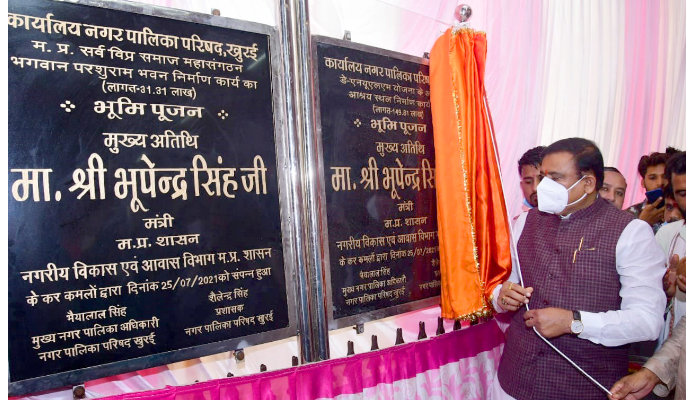 कार्यालय नगर पालिका परिषद,खुरई
म. प्र. सर्व विप्र समाज महासंगठन
भगवान परशुराम भवन निर्माण कार्य का
(लागत-31.31 लाख)
भूमि पूजन
मुख्य अतिथि
मा. श्री भूपेन्द्र सिंह जी
मंत्री
म.प्र. शासन
नगरीय विकास एवं आवास विभाग म.प्र. शासन
के कर कमलों द्वारा दिनांक 25/07/2021को संपन्न हुआ
भैयालाल सिंह
मुख्य नगर पालिका अधिकारी
नगर पालिका परिषद खुरई
शैलेन्द्र सिंह
प्रशासक
नगर पालिका परिषद खुरई
कार्यालय नगर पालिका परिषद
डे-एनयूएलएम योजना के
आश्रय स्थल निर्माण कार्य
(लागत-149.31 लाख)
भूमि पूजन
मुख्य अतिथि
मा. श्री भूपेन्द्र
मंत्री
म.प्र. शासन
नगरीय विकास एवं आवास विभाग
के कर कमलों द्वारा दिनांक 25/
भैयालाल सिंह
मुख्य नगर पालिका अधिकारी
नगर पालिका परिषद खुरई